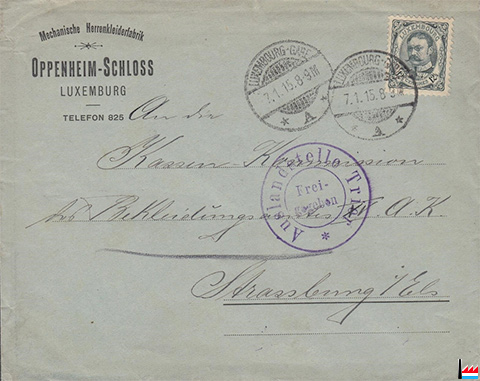 Mechanische Herrenkleiderfabrik
OPPENHEIM-SCHLOSS
LUXEMBURG
TELEFON 825
LUXEMBOURG-GARE
7.1.15.8-9M
* A *
LUXEMBOURG-GARE
7.1.15.8-9M
* A *
LUXEMBOURG
An der
Kassen-Kommission
des Bekleidungsamtes A.K.
Auslandstelle Trier *
Frei-
gegeben
Strassburg i/Els